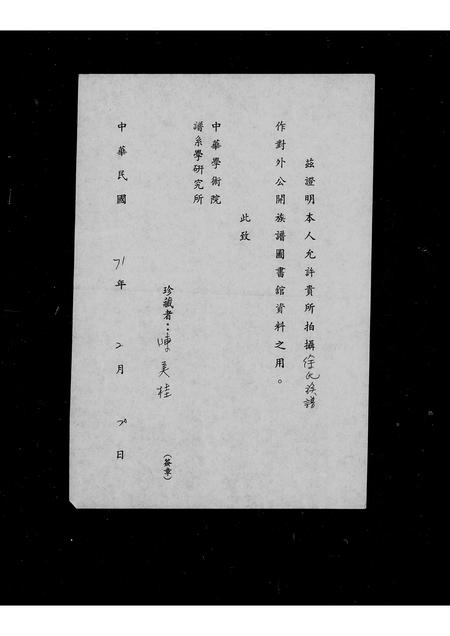 茲證明本人允許貴所拍攝徐氏族譜
作對外公開族譜圖書館資料之用。
此致
中華學術院
譜系學研究所
珍藏者：陳美桂（簽章）
中華民國71年2月 日